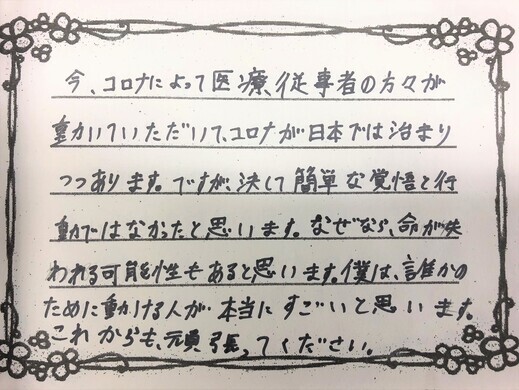 今、コロナによって医療従事者の方々が
動いていただいて、コロナが日本では治まり
つつあります。ですが、決して簡単な覚悟と行
動ではなかったと思います。なぜなら、命が失
われる可能性もあると思います。僕は、誰かの
ために動ける人が本当にすごいと思います。
これからも、頑張ってください。